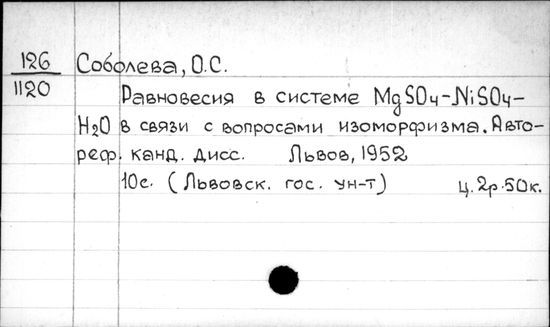 126 Соболева, О.С.
1120
Равновесия в системе MgSO4-NiSO4-
H2O в связи с вопросами изоморфизма. Авто-
реф. канд. дисс. Львов, 1952
10с. (Львовск. гос. ун-т) ц. 2р. 50к.